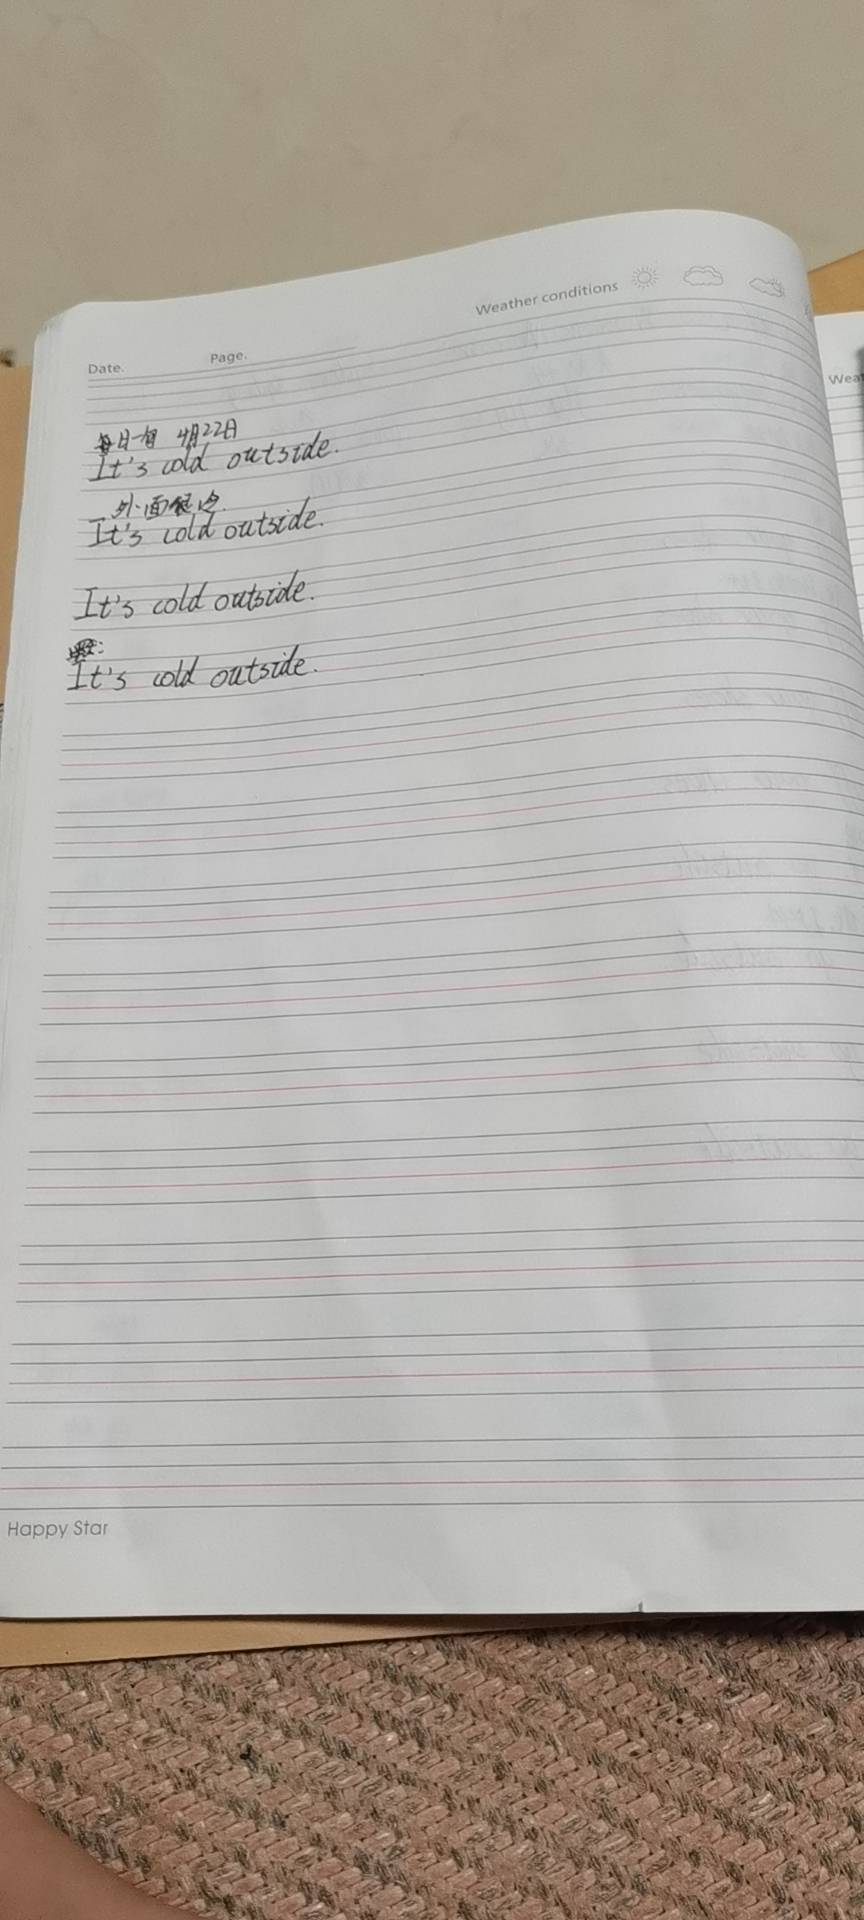 Weather conditions
Date. Page.
每日一句 4月22日
It's cold outside.
外面很冷.
It's cold outside.
It's cold outside.
默:
It's cold outside.
Happy Star
Wea